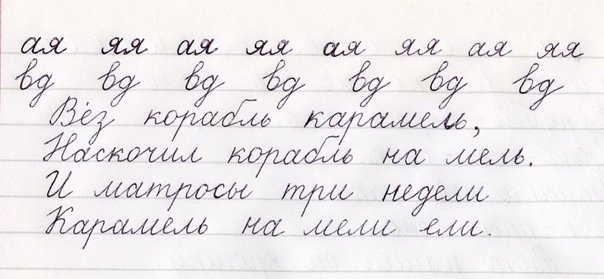 ая яя ая яя ая яя ая яя
вд вд вд вд вд вд вд
Вёз корабль карамель,
Наскочил корабль на мель.
И матросы три недели
Карамель на мели ели.